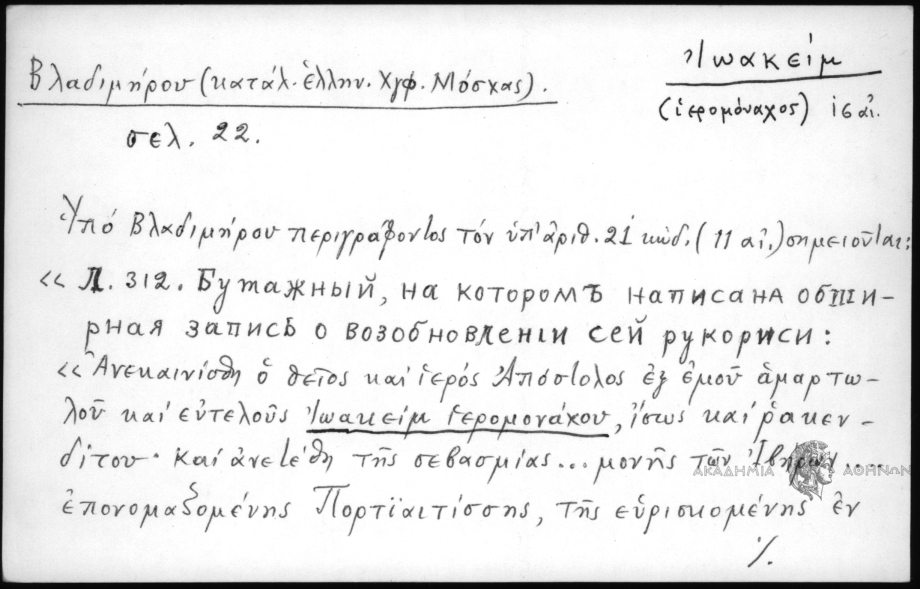 Βλαδιμήρου (κατάλ. ἑλλην. Χγφ. Μόσχας).
Ἰωακείμ
(ἱερομόναχος) ις αἰ.
σελ. 22.
Ὑπό Βλαδιμήρου περιγράφοντος τόν ὑπ' ἀριθ. 21 κώδ. (11 αἰ.) σημειοῦται:
«Л. 312. Бумажный, на которомъ написана обши-
рная запись о возобновленіи сей рукориси:
«Ἀνεκαινίσθη ὁ θεῖος καί ἱερός Ἀπόστολος ἐξ ἐμοῦ ἁμαρτω-
λοῦ καί εὐτελοῦς Ἰωακείμ Ἱερομονάχου, ἴσως καί ῥακεν-
δίτου· καί ἀνετέθη τῆς σεβασμίας... μονῆς τῶν Ἰβήρων....
ΑΚΑΔΗΜΙΑ ΑΘΗΝΩΝ
ἐπονομαζομένης Πορτϊαιτίσσης, τῆς εὑρισκομένης ἐν
./.